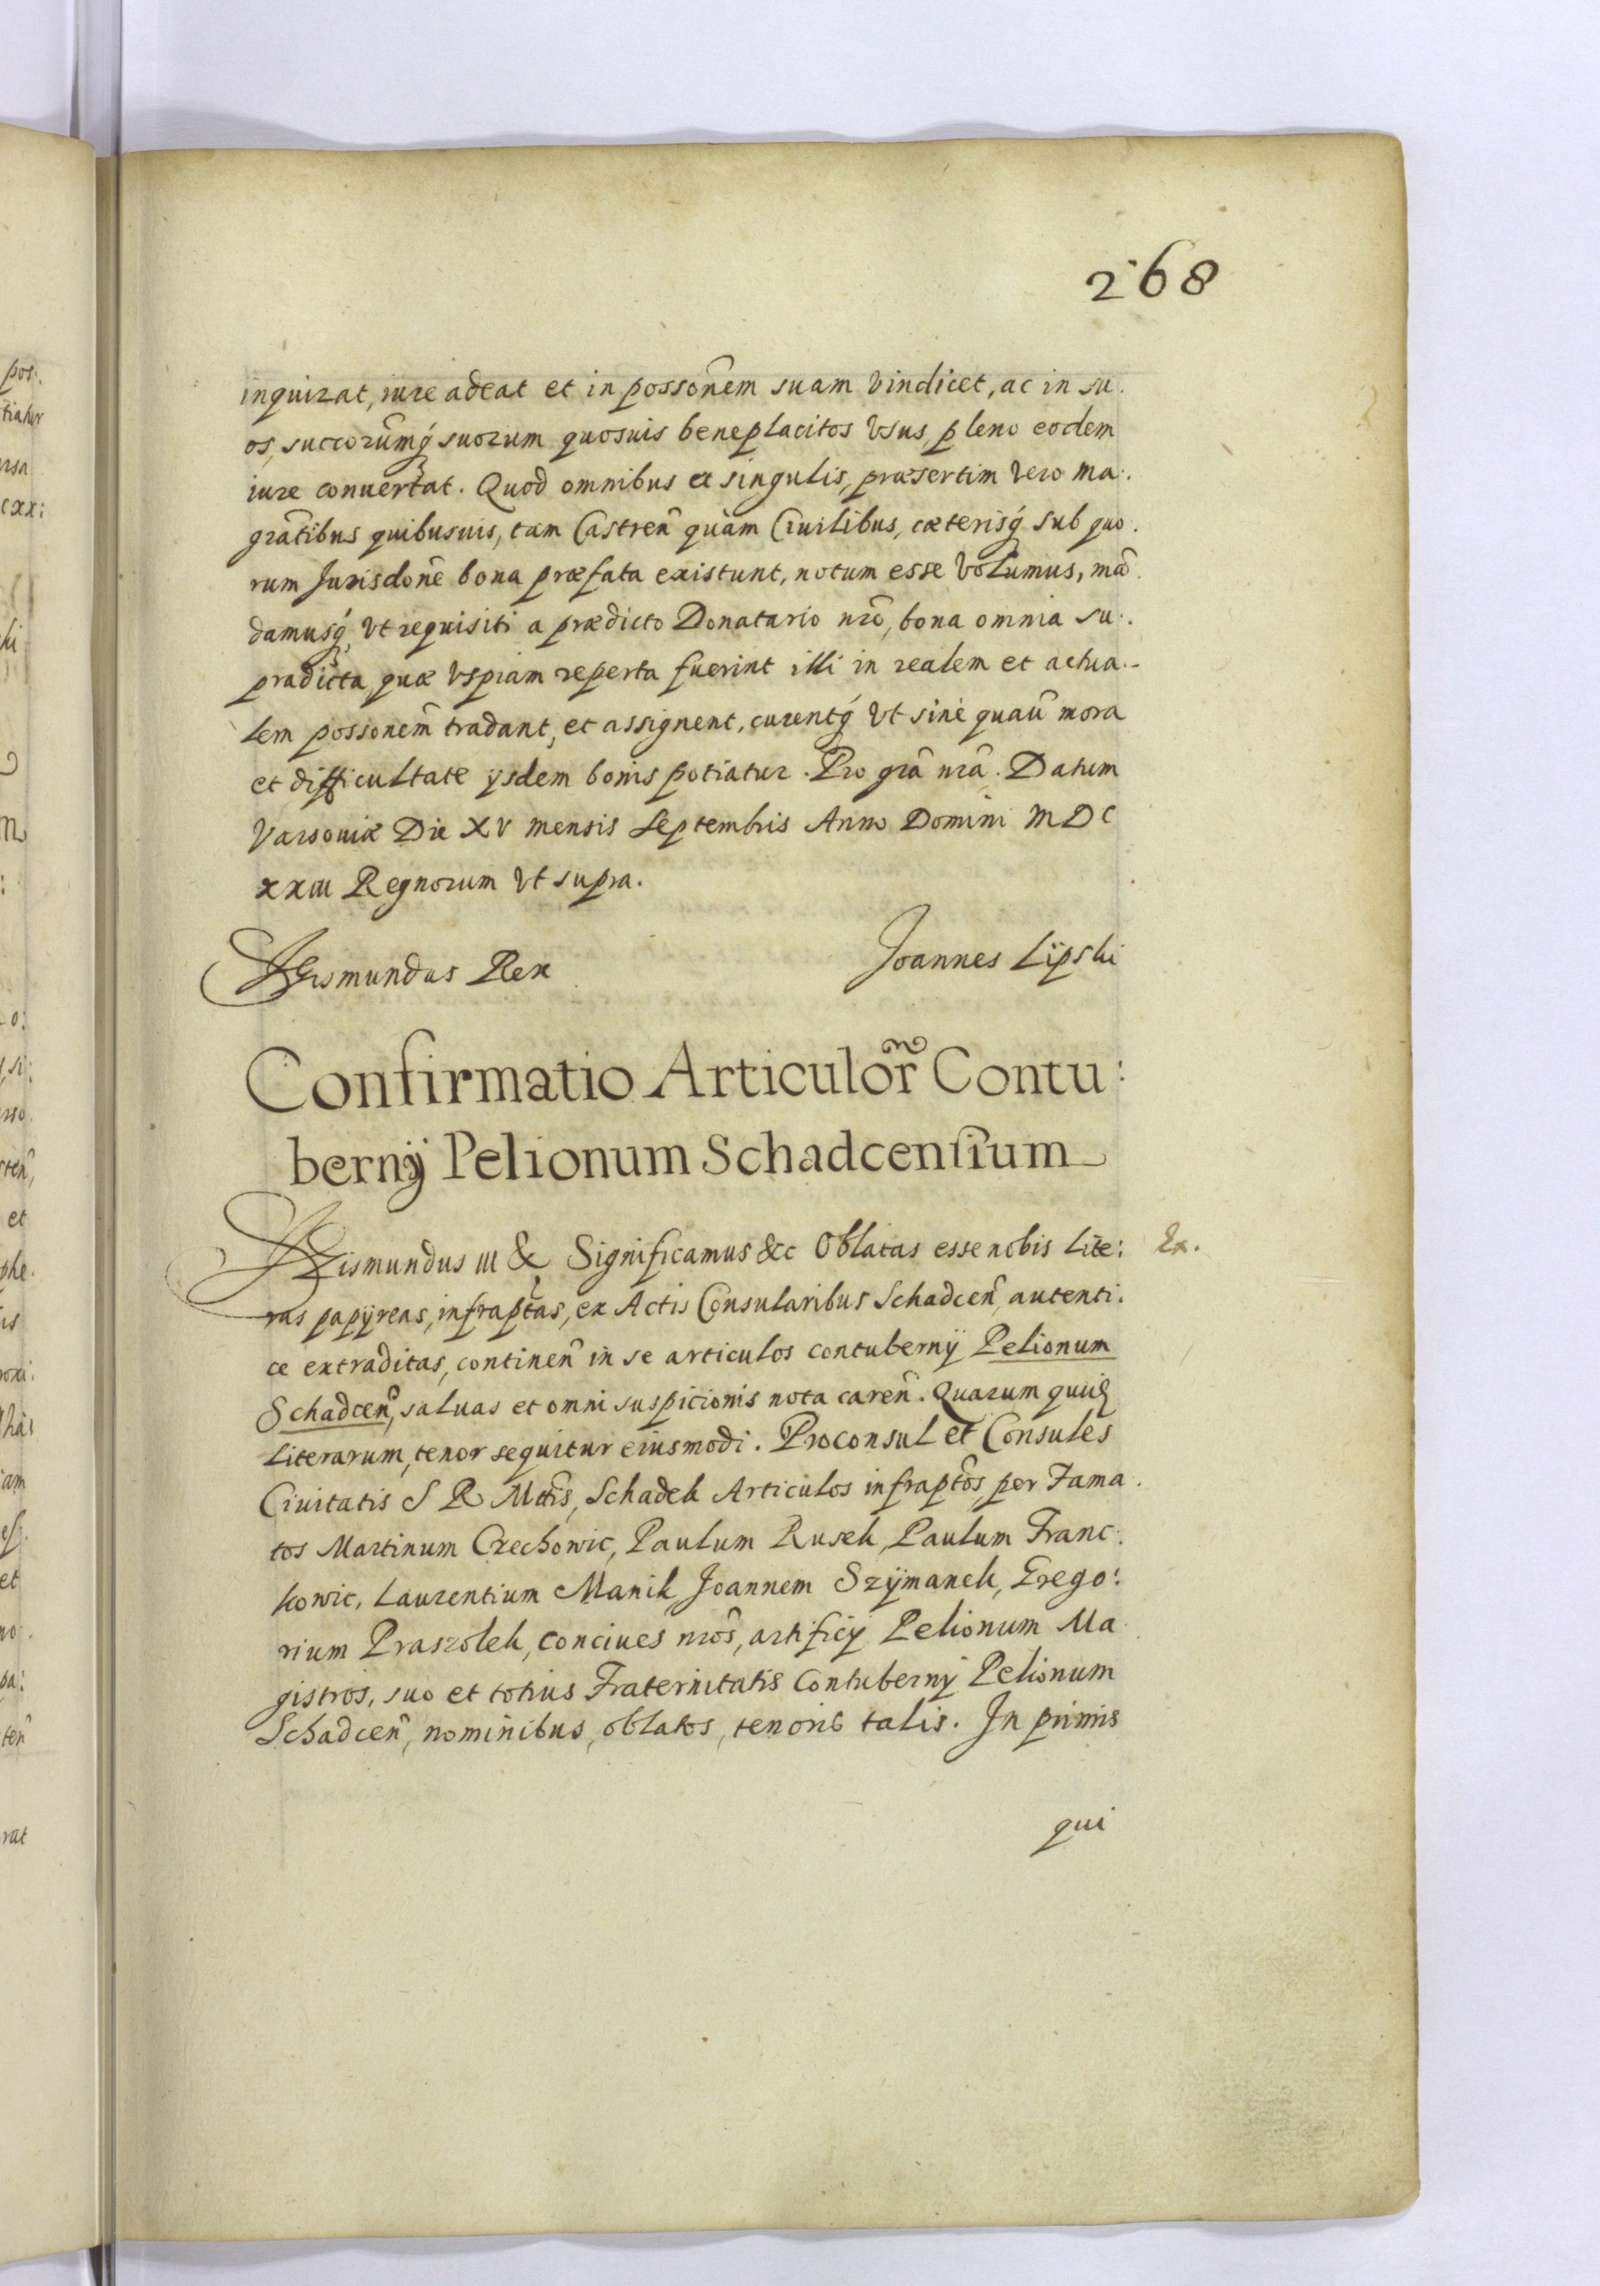 268
inquirat, iure adeat et in possonem̃ suam vindicet, ac in su.
os, succorum̃q́ suorum quosuis beneplacitos vsus, pleno eodem
iure conuertat. Quod omnibus et singulis, præsertim vero ma.
gratĩbus quibusuis, tam Castreñ quàm Ciuilibus, cæterisq́ sub quo.
rum Jurisdonẽ bona præfata existunt, notum esse volumus, mã.
damusq́, vt requisiti a prædicto Donatario nrõ, bona omnia su.
pradicta quæ vspiam reperta fuerint illi in realem et actua.
lem possonem̃ tradant, et assignent, curentq́ vt sine quaũ mora
et difficultate ÿsdem bonis potiatur. Pro grã nrã. Datum
Varsouiæ Die XV mensis Septembris Anno Domini MDC
xxiii Regnorum vt supra.
Sigismundus Rex
Joannes Lipski
Confirmatio Articulor̃ Contu:
bernÿ Pelionum Schadcensium
Sigismundus III & Significamus &c Oblatas esse nobis Lite:
Ex.
ras papÿreas, infraptãs, ex Actis Consularibus Schadceñ autenti.
ce extraditas, continen̄ in se articulos contubernÿ Pelionum
Schadceñ, saluas et omni suspicionis nota careñ. Quarum quiið
Literarum, tenor sequitur eiusmodi. Proconsul et Consules
Ciuitatis S R Mttis, Schadek Articulos infraptõs, per Fama.
tos Martinum Czechowic, Paulum Rusek, Paulum Franc.
kowic, Laurentium Manik, Joannem Szÿmanek, Grego:
rium Praszolek, conciues nrõs, artificÿ Pelionum Ma
gistros, suo et totius Fraternitatis Contubernÿ Pelionum
Schadceñ, nominibus, oblatos, tenoris talis. In primis
qui